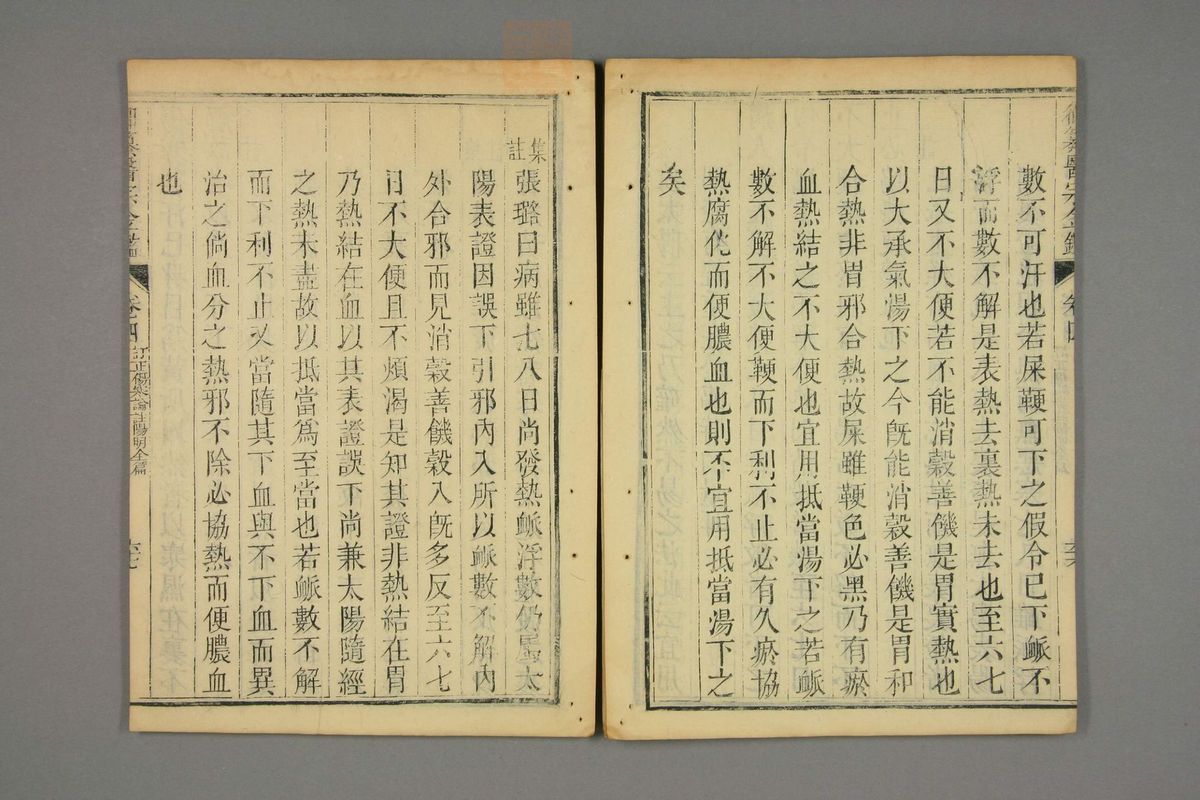 御纂醫宗金鑑
卷四
數不可汗也若屎鞕可下之假令已下脈不
浮而數不解是表熱去裏熱未去也至六七
日又不大便若不能消穀善饑是胃實熱也
以大承氣湯下之今旣能消穀善饑是胃和
合熱非胃邪合熱故屎雖鞕色必黑乃有瘀
血熱結之不大便也宜用抵當湯下之若脈
數不解不大便鞕而下利不止必有久瘀協
熱腐化而便膿血也則不宜用抵當湯下之
矣
集註
張璐曰病雖七八日尚發熱脈浮數仍屬太
陽表證因誤下引邪內入所以脈數不解內
外合邪而見消穀善饑穀入旣多反至六七
日不大便且不煩渴是知其證非熱結在胃
乃熱結在血以其表證誤下尚兼太陽隨經
之熱未盡故以抵當爲至當也若脈數不解
而下利不止又當隨其下血與不下血而異
治之倘血分之熱邪不除必協熱而便膿血
也
御纂醫宗金鑑
卷四
訂正傷寒論註陽明全篇